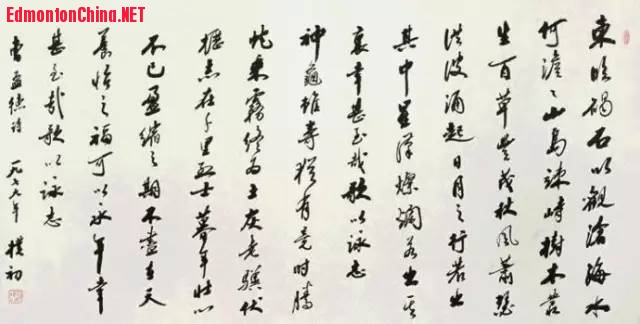 EdmontonChina.NET
東臨碣石以觀滄海水
何澹〻山島竦峙樹木叢
生百草豐茂秋風蕭瑟
洪波涌起日月之行若出
其中星漢燦爛若出其
裏幸甚至哉歌以詠志
神龜雖壽猶有竟時騰
蛇乘霧終為土灰老驥伏
櫪志在千里烈士暮年壯心
不已盈縮之期不盡在天
養怡之福可以永年幸
甚至哉歌以詠志
曹孟德詩 樸初